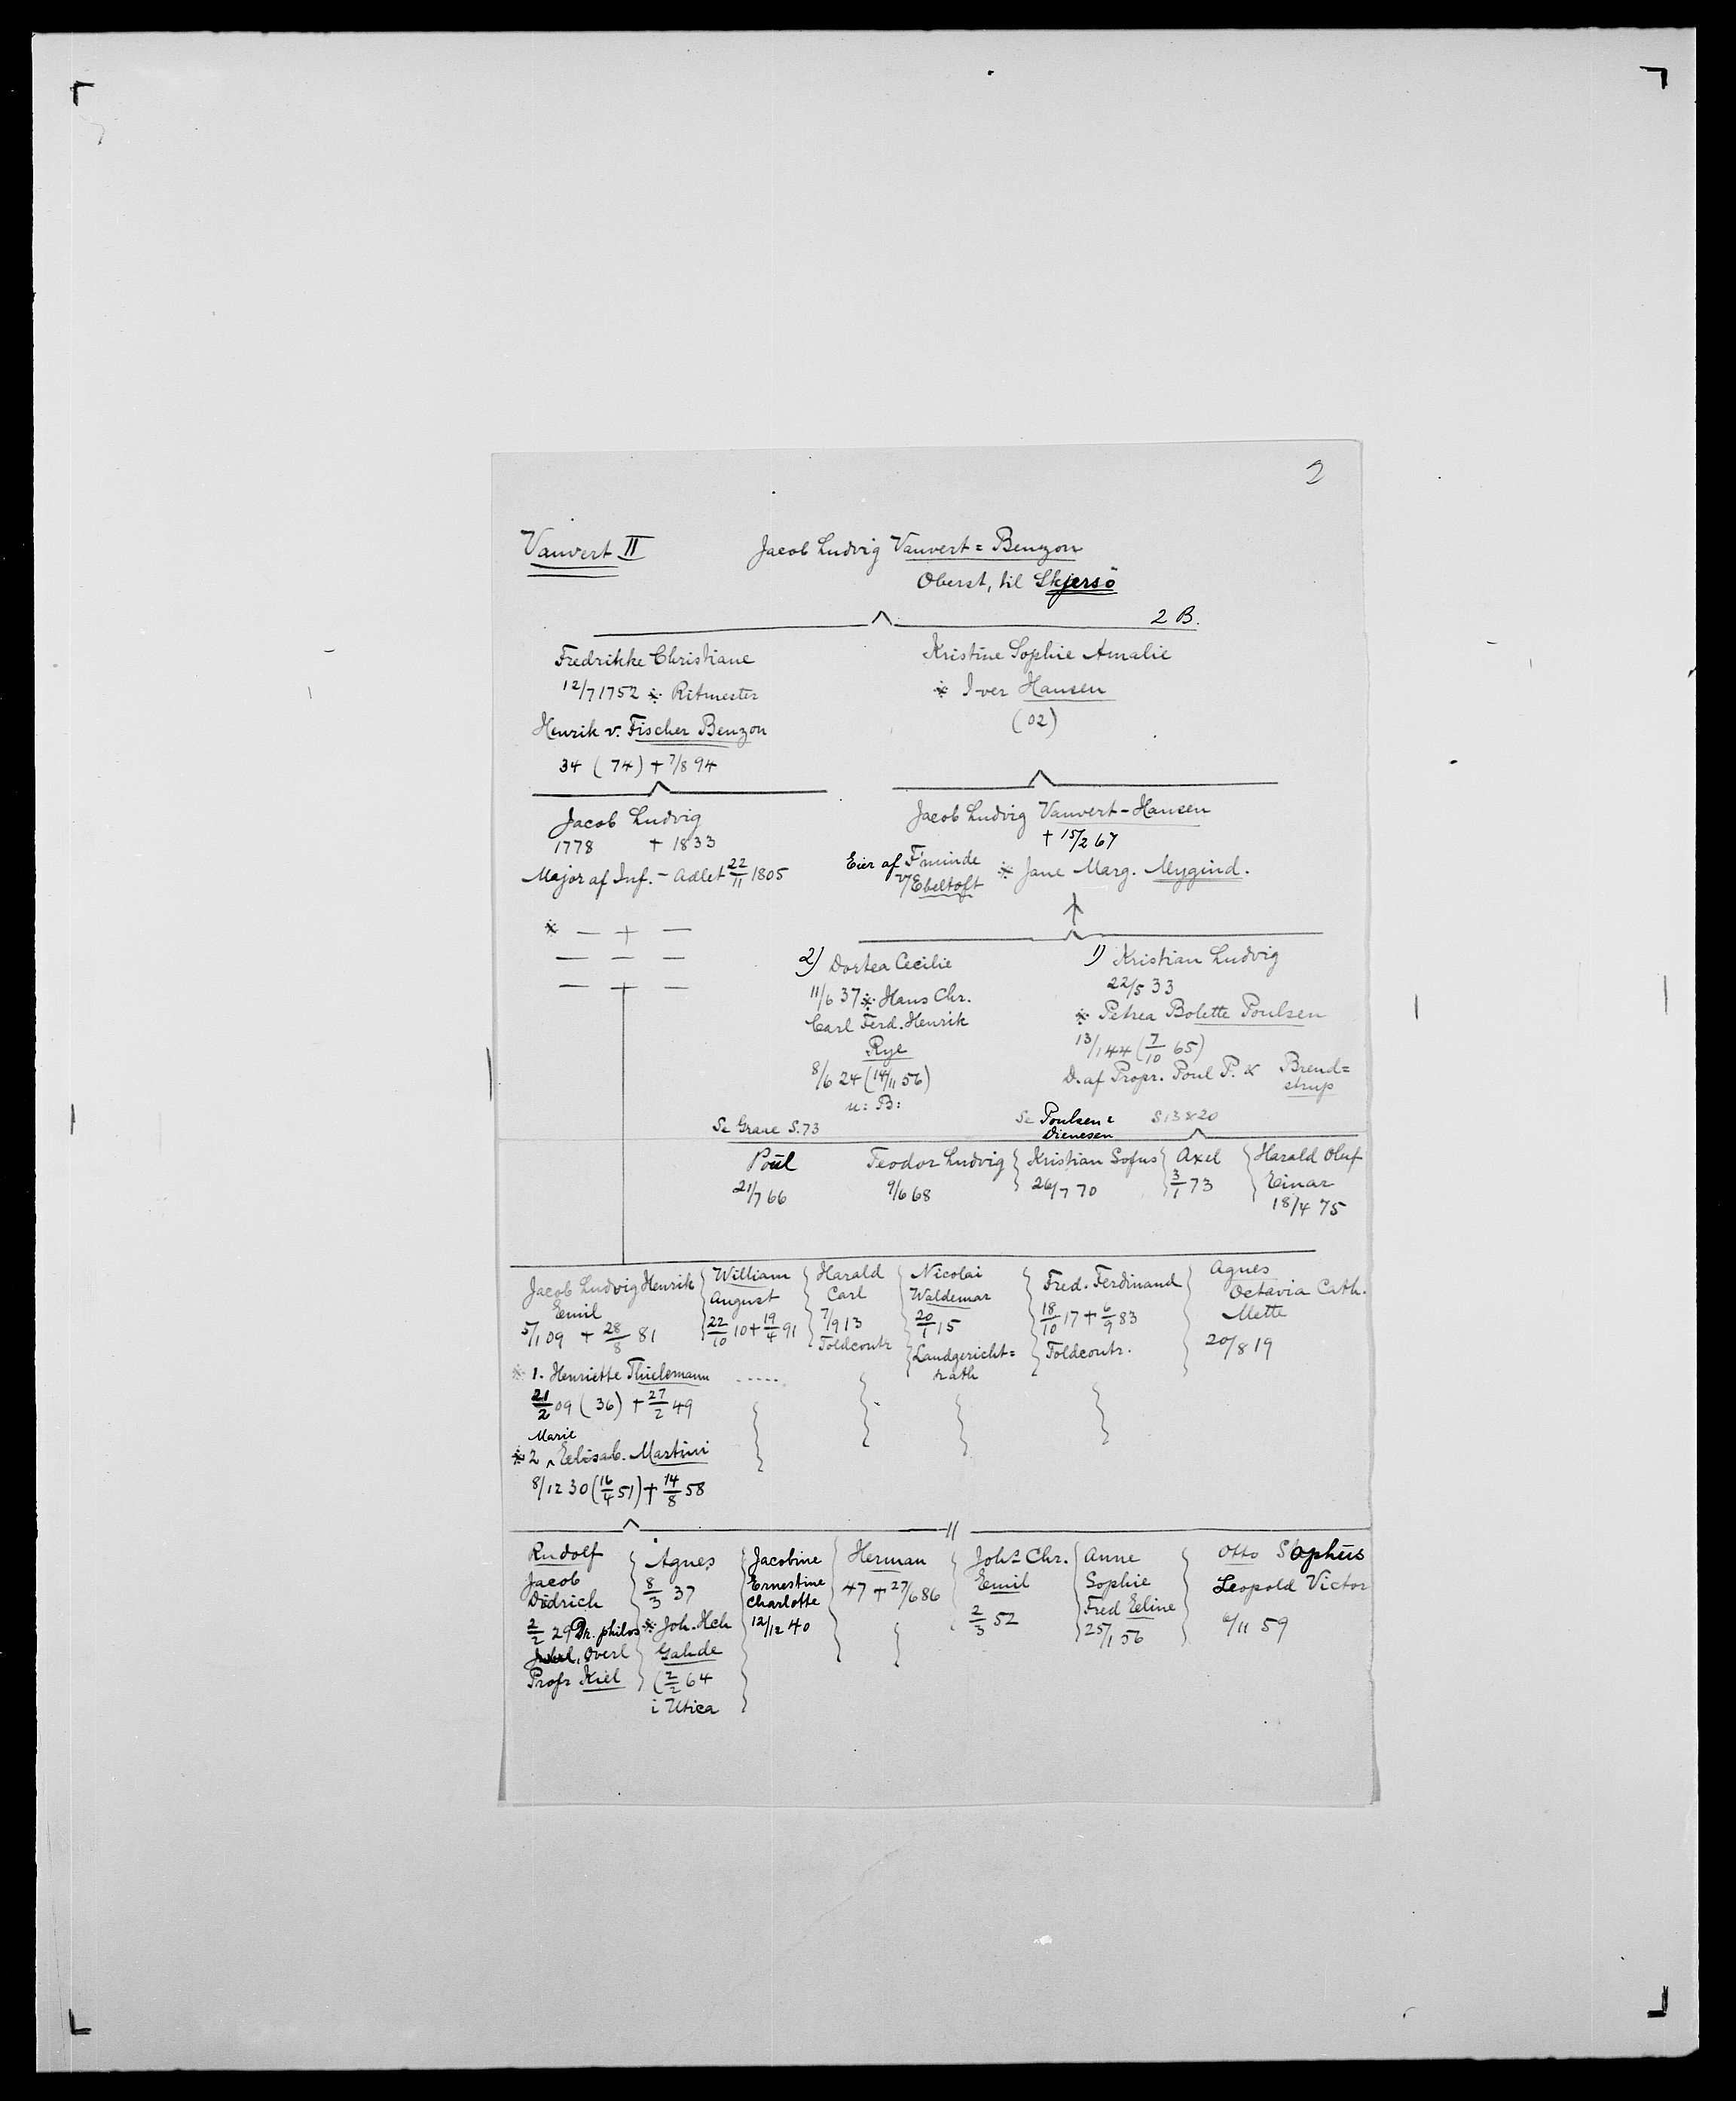 2
Vauvert II
Jacob Ludvig Vauvert = Benzon
Oberst, til Skjersö
2 B.
Fredrikke Christiane
12/7 1752 ※ Ritmester
Henrik v. Fischer Benzon
34 (74) + 7/8 94
Kristine Sophie Amalie
※ Iver Hansen
(02)
Jacob Ludvig
1778 + 1833
Major af Inf. - Adlet 22/11 1805
Jacob Ludvig Vauvert-Hansen
+ 15/2 67
Eier af F'minde
v/Ebeltoft
※ Jane Marg. Mygind.
※ — + —
— — —
— —
2) Dortea Cecilie
11/6 37 ※ Hans Chr.
Carl Ferd. Henrik
Rye
8/6 24 (14/11 56)
u: B:
Se Grane S. 73
1) Kristian Ludvig
22/5 33
※ Petrea Bolette Poulsen
13/1 44 (7/10 65)
D. af Propr. Poul P. & Brend=
strup
Se Poulsen = S 13 & 20
Dienesen
Poul
21/7 66
Teodor Ludvig
9/6 68
Kristian Sofus
26/7 70
Axel
3/1 73
Harald Oluf
Einar
18/4 75
Jacob Ludvig Henrik
Emil
5/1 09 + 28/8 81
※ 1. Henriette Thielemann .....
21/2 09 (36) + 27/2 49
Marie
※ 2 ^ Elisab. Martini
8/12 30 (16/4 51) + 14/8 58
William
August
22/10 10 + 19/4 91
Harald
Carl
7/9 13
Toldcontr
Nicolai
Waldemar
20/1 15
Landgericht=
rath
Fred. Ferdinand
18/10 17 + 6/9 83
Toldcontr.
Agnes
Octavia Cath.
Mette
20/8 19
Rudolf
Jacob
Didrich
2/2 29 Dr. philos
Overl
Profr Kiel
Agnes
8/3 37
※ Joh. Hch
Gahde
(2/2 64
i Utica
Jacobine
Ernestine
Charlotte
12/12 40
Herman
47 + 27/6 86
Johs Chr.
Emil
2/3 52
Anne
Sophie
Fred Eline
25/1 56
Otto Sophus
Leopold Victor
6/11 59